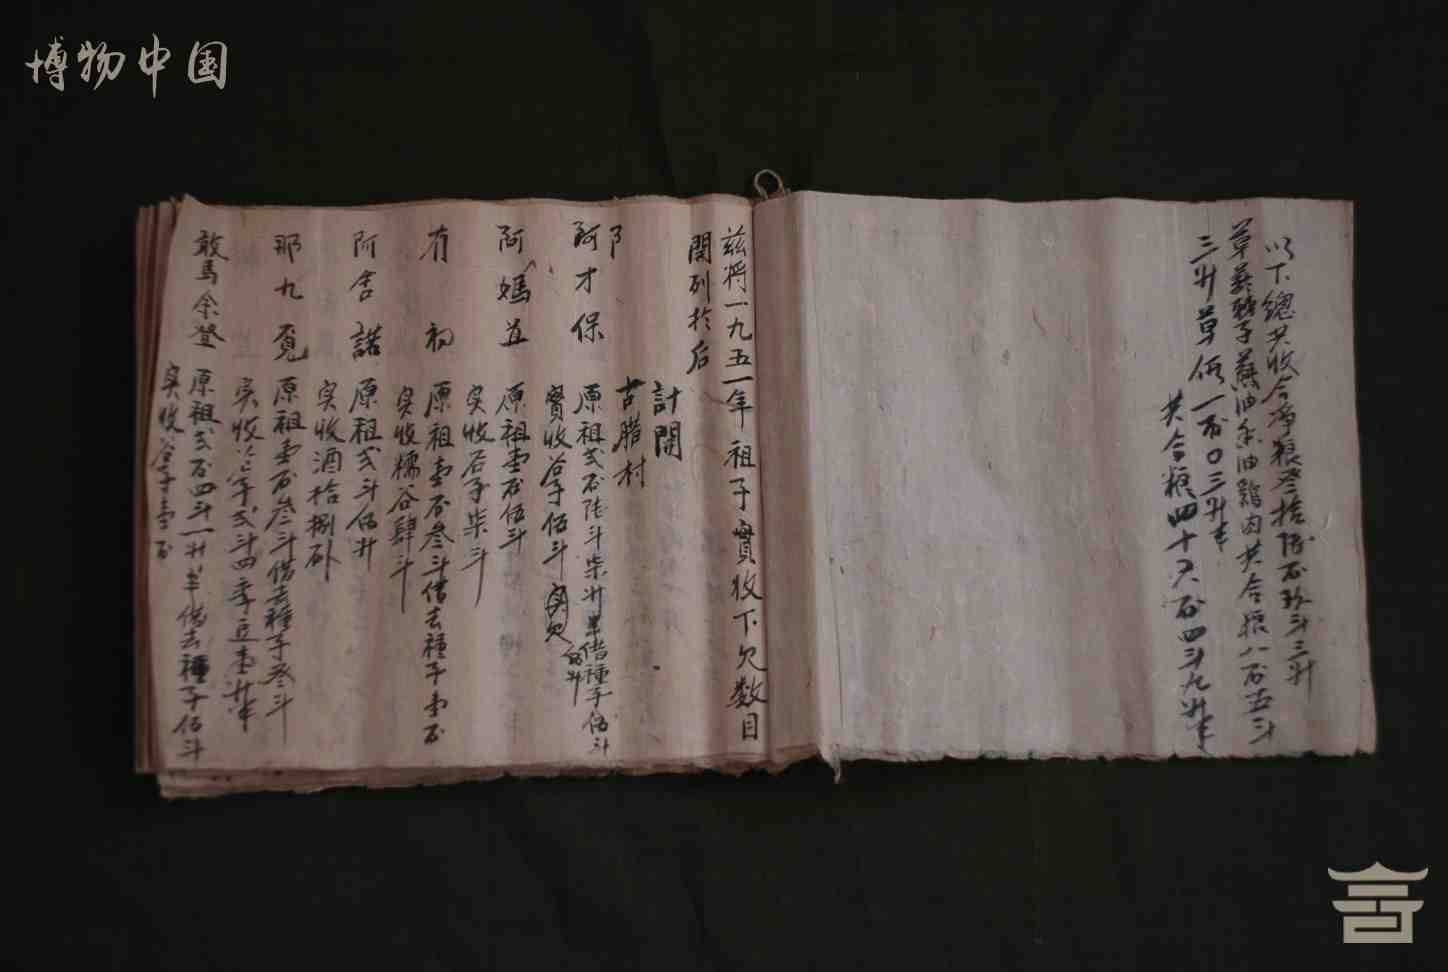 博物中国
以下總共收合净粮叁拾陸石玖斗三升
草 子蘇油 油鷄肉共合粮八石五斗
三升草 一石〇三升半
共合粮四十六石四斗九升半
兹将一九五一年祖子實收下欠数目
開列於后
計開
古腊村
阝
阿才保 原祖弍石陸斗柒升半借種子伍斗
實收谷子伍斗 实欠
阿媽苴 原祖壹石伍斗
实收谷子柒斗
有初 原祖壹石叁斗借去種子壹石
实收糯谷肆斗
阿舍諾 原祖弍斗伍升
实收酒拾捌
那九寛 原祖壹石叁斗借去種子叁斗
实收谷子弍斗四季豆壹升半
敢馬余登 原祖弍石四斗一升半借去種子伍斗
实收谷子壹石